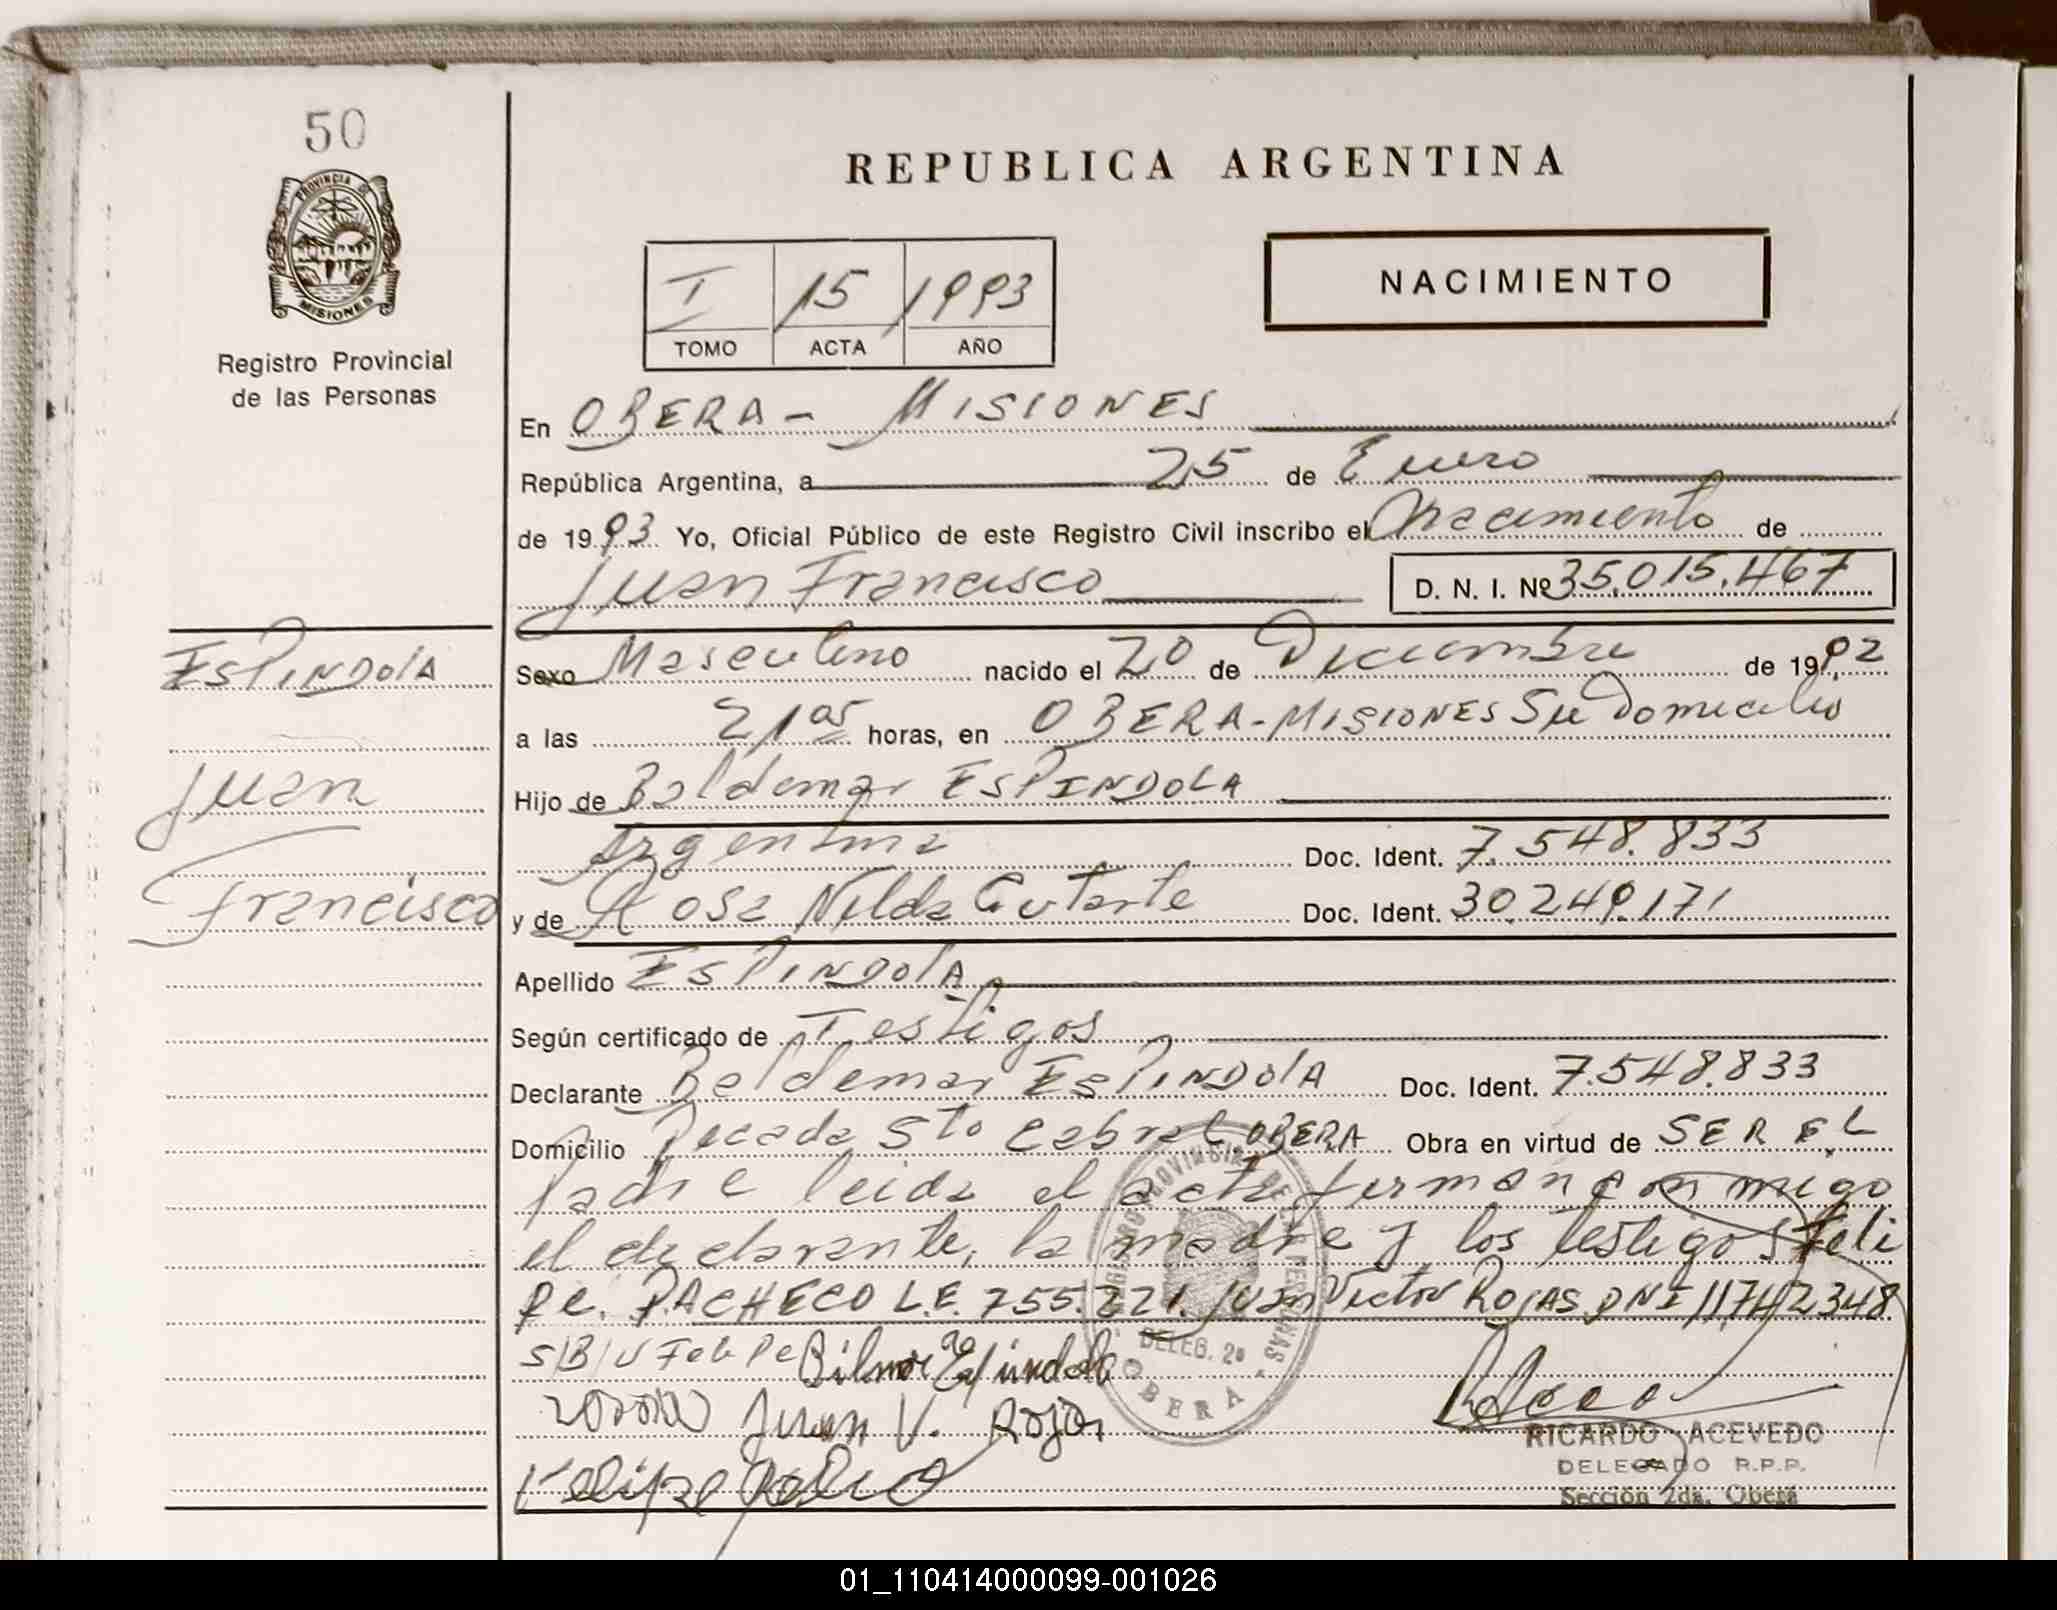 50
PROVINCIA DE
MISIONES
Registro Provincial
de las Personas
REPUBLICA ARGENTINA
I 15 1993
TOMO ACTA AÑO
NACIMIENTO
En OBERA - MISIONES
República Argentina, a 25 de Enero
de 1993 Yo, Oficial Público de este Registro Civil inscribo el Nacimiento de
Juan Francisco D. N. I. Nº 35.015.467
ESPINDOLA
Juan
Francisco
Sexo Masculino nacido el 20 de Diciembre de 1992
a las 21 05 horas, en OBERA-MISIONES Su Domicilio
Hijo de Baldemar ESPINDOLA
Argentina Doc. Ident. 7.548.833
y de Rosa Nelda Doc. Ident. 30.249.171
Apellido ESPINDOLA
Según certificado de Testigos
Declarante Baldemar ESPINDOLA Doc. Ident. 7.548.833
Domicilio Picada Sto Cabral OBERA Obra en virtud de SER EL
Padre leida el acta firman conmigo
el declarante, la madre y los testigos Feli
pe. PACHECO L.E. 755.221. Juan Victor ROJAS DNI 11,742348
S/B/U Felipe
Juan V. Rojas
REGISTRO PROVINCIAL DE LAS PERSONAS
DELEG. 2ª
OBERA
RICARDO ACEVEDO
DELEGADO R.P.P.
Sección 2da. Oberá
01_110414000099-001026